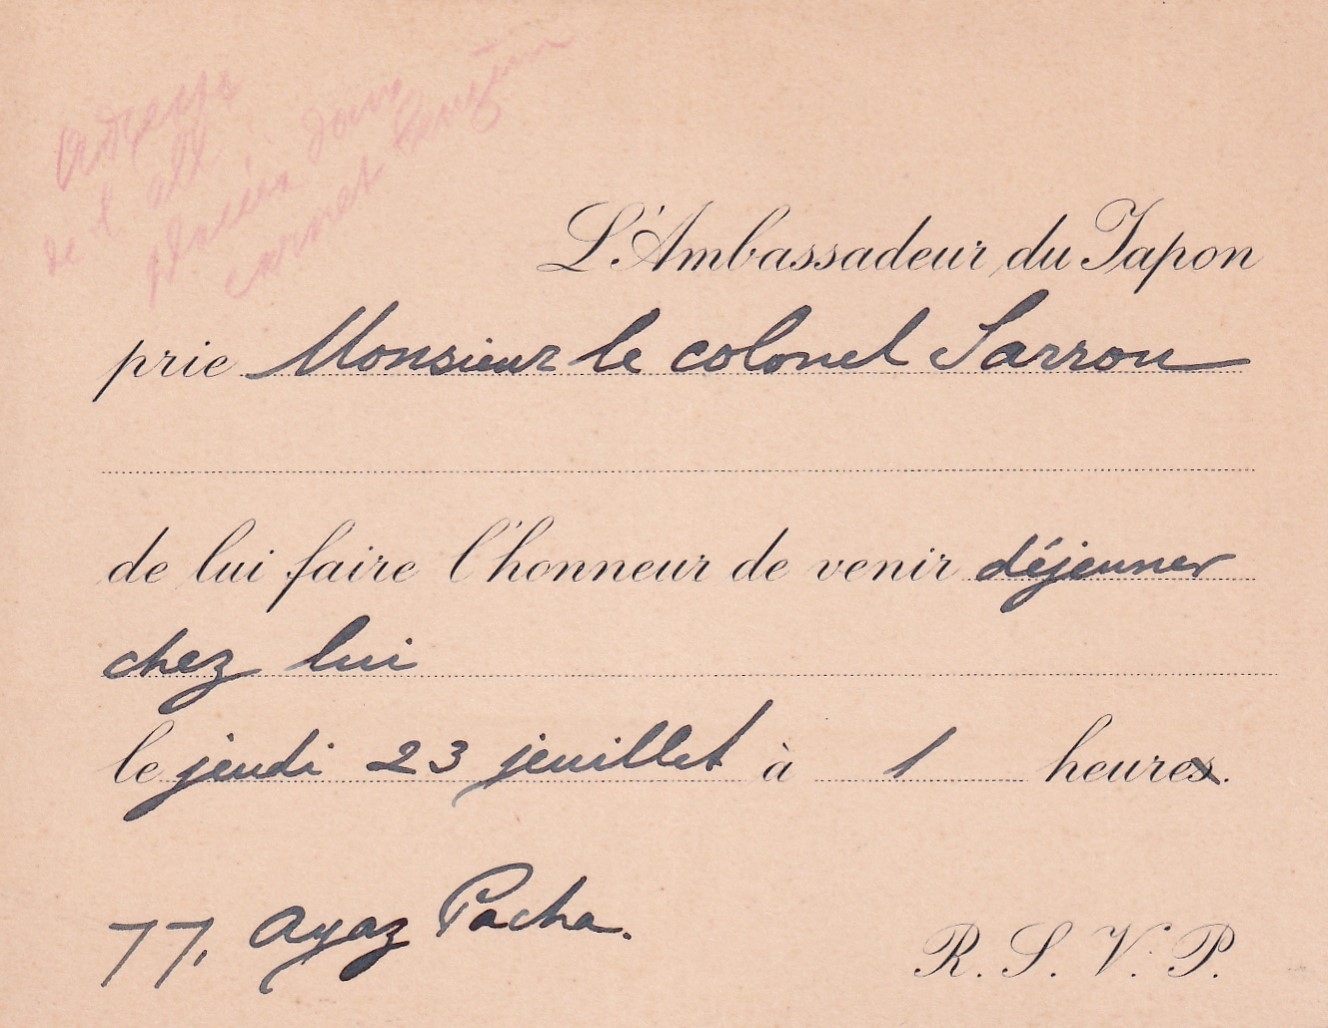 adresse
de l'all
dans
carnet
L'Ambassadeur du Japon
prie Monsieur le colonel Sarrou
de lui faire l'honneur de venir déjeuner
chez lui
le jeudi 23 jeuillet à 1 heures.
77, Ayaz Pacha.
R. S. V. P.